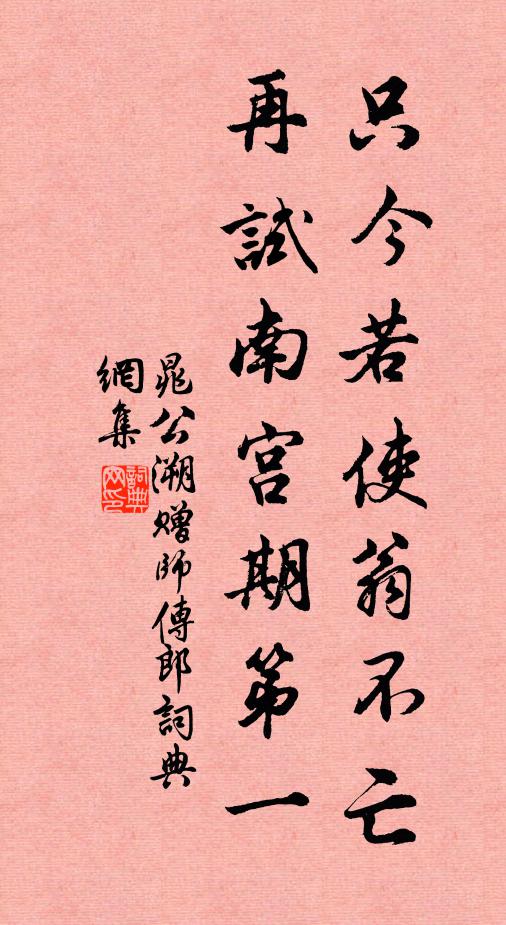 只今若使翁不亡
再試南宮期第一
晁公溯贈師傳郎詞典
網集
詞典
网印